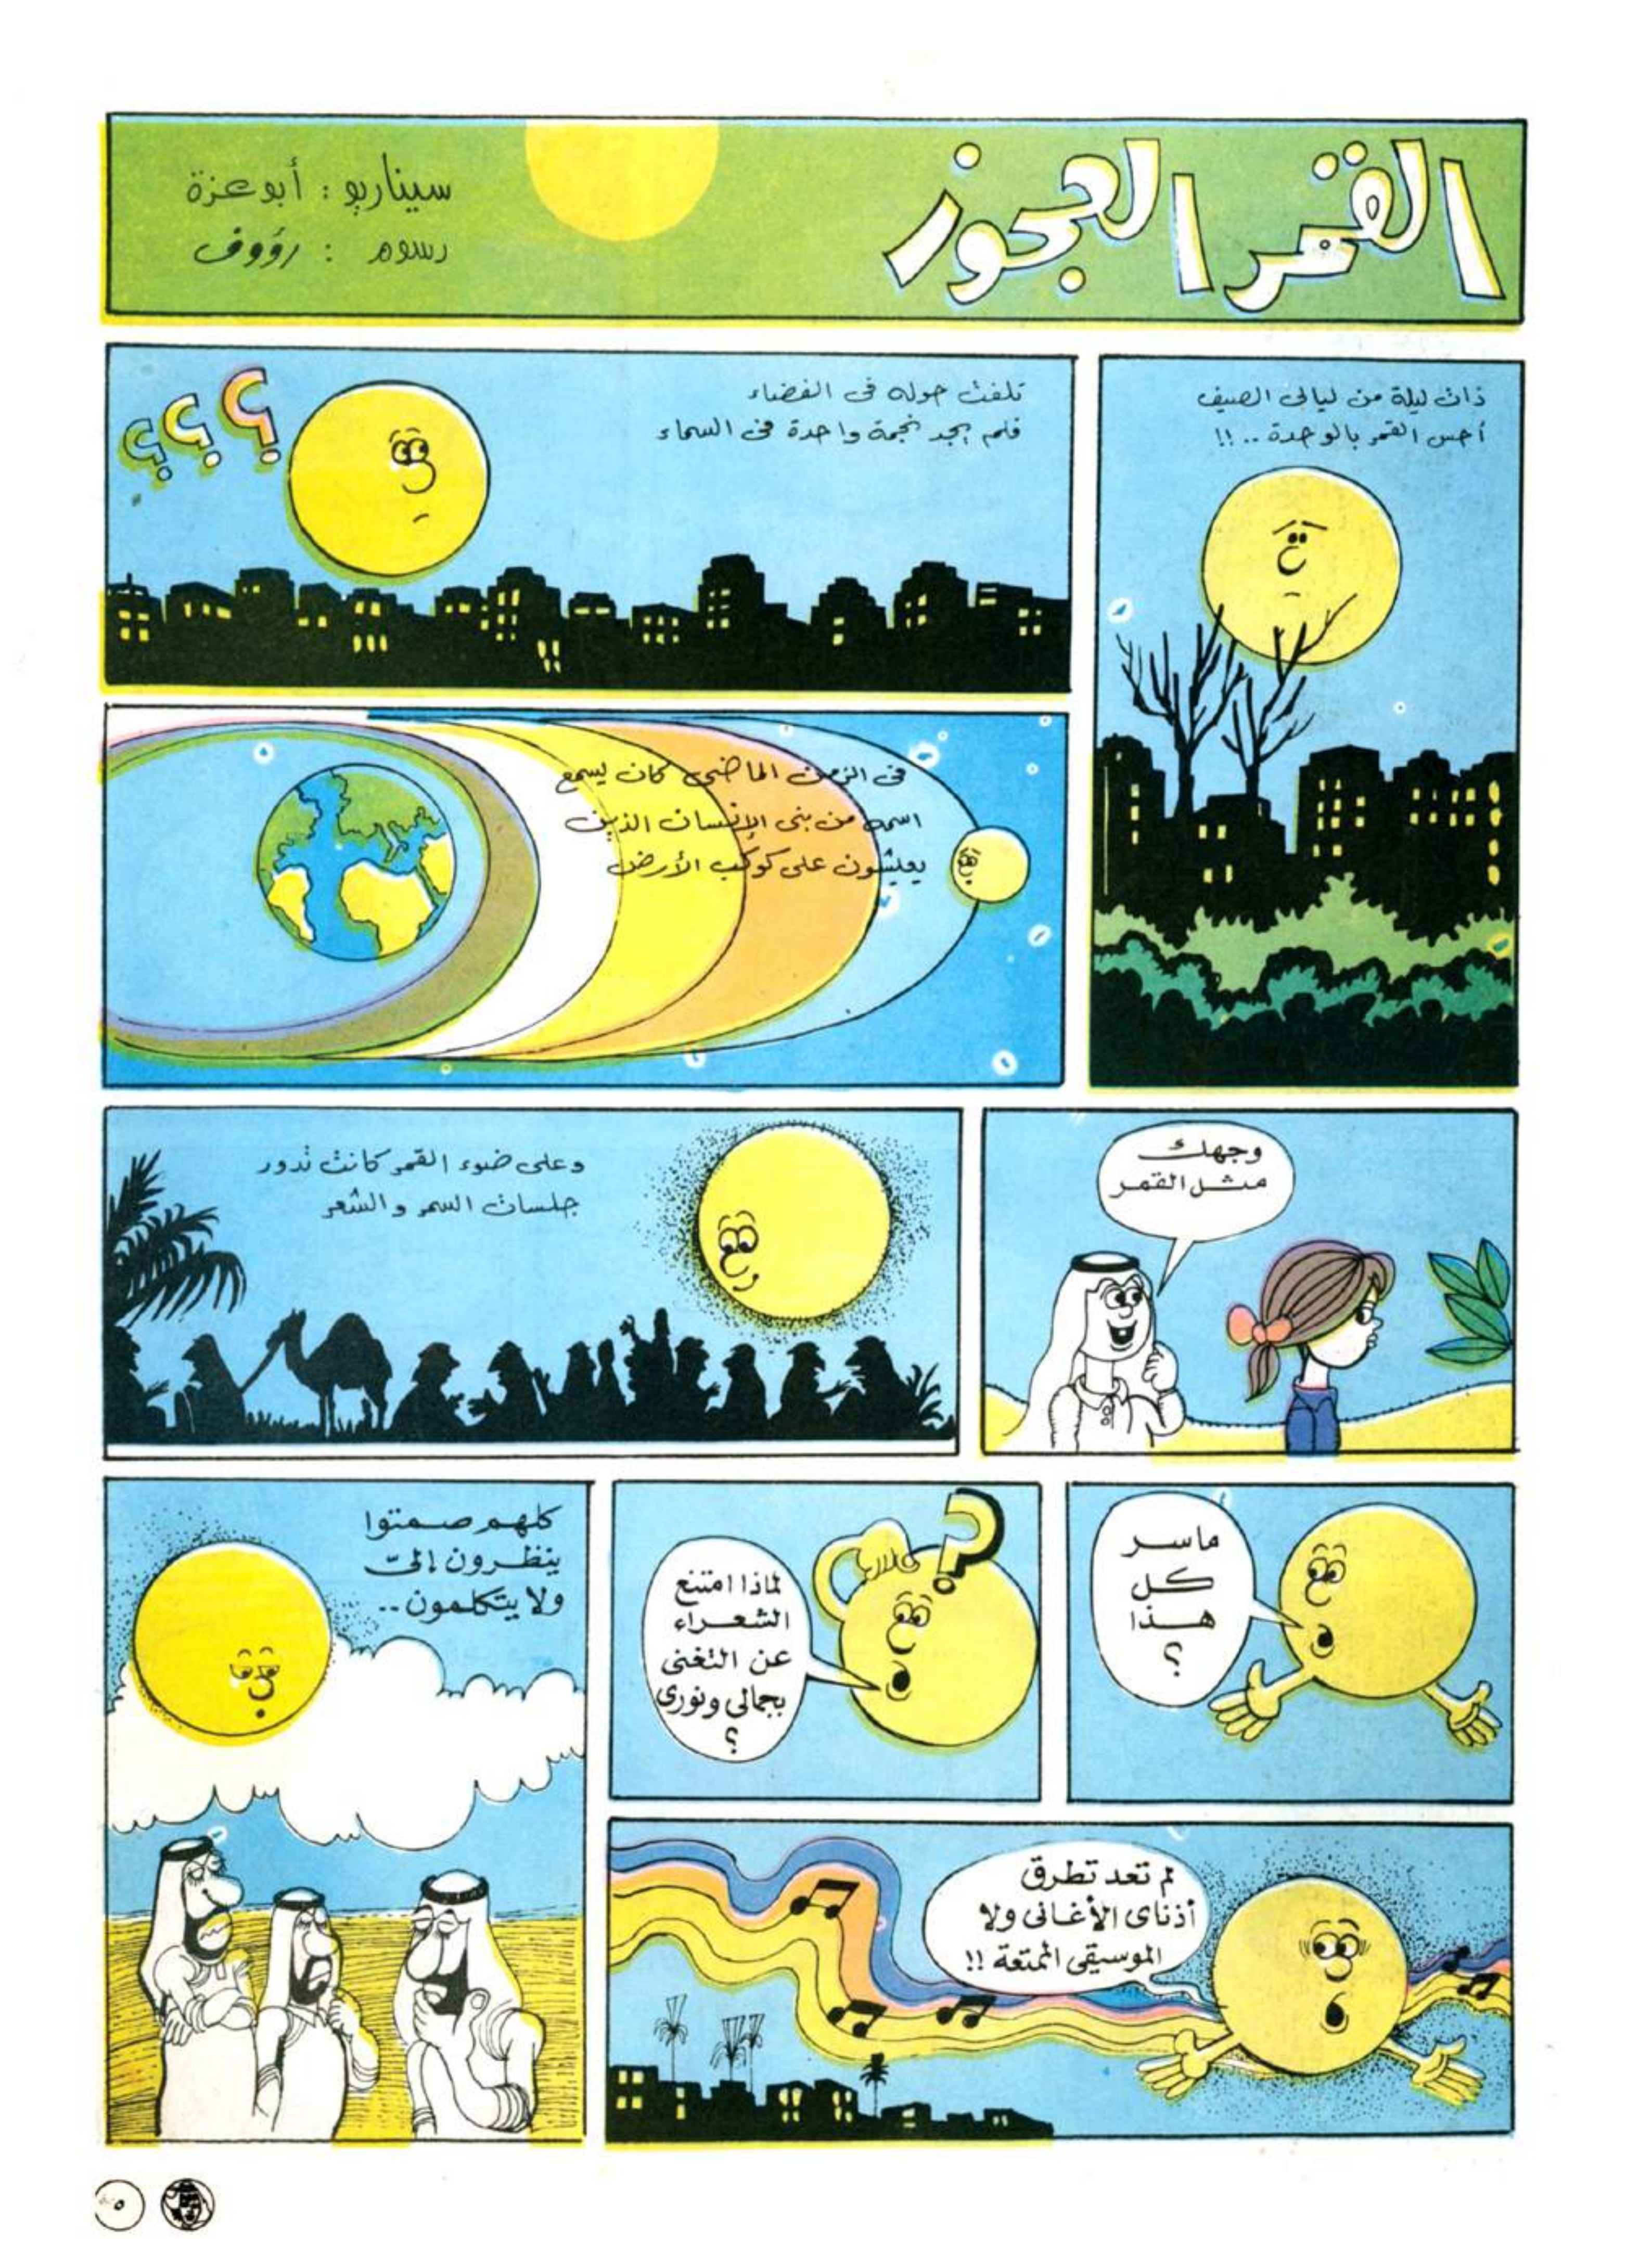 القمر العجوز
سيناريو : أبوعزة
رسوم : رؤوف
ذات ليلة من ليالى الصيف
أحس القمر بالوحدة .. !!
تلفت حوله فى الفضاء
فلم يجد نجمة واحدة فى السماء
؟؟؟
فى الزمن الماضى كان يسمع
اسمه من بنى الإنسان الذين
يعيشون على كوكب الأرض
وجهك
مثل القمر
وعلى ضوء القمر كانت تدور
جلسات السمر والشعر
ماسر
كل
هذا
؟
؟
لماذا امتنع
الشعراء
عن التغنى
بجمالى ونورى
؟
لم تعد تطرق
أذناى الأغانى ولا
الموسيقى الممتعة !!
كلهم صمتوا
ينظرون إلىّ
ولا يتكلمون ..
٥